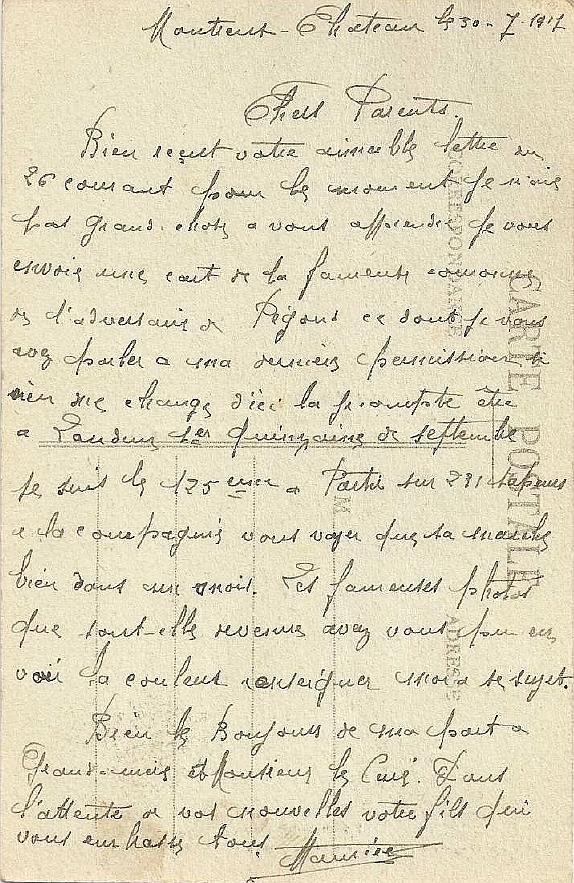 Chateau le 30-7-1917
Chers Parents.
Bien reçut votre aimable lettre du
26 courant pour le moment je n'ais
pas grand chose a vous apprendre je vous
envoie une cart de la fameuse
de l'adversaire de Pégoud ce dont je vous
avez parler a ma dernière permission si
rien me change d'ici la je compte être
a 1er Quinzaine de septembre
Je suis le 125 eme a Partir sur 231
a la compagnie vous voyer que sa marche
bien dans un mois. Les fameuses photos
que sont-elle revenue avez vous pu en
voir la couleur renseigner moi a se sujet.
Bien le Bonjour de ma part a
Grand-mère et Monsieur le Curé. Dans
l'attente de vos nouvelles votre fils qui
vous embrasse tous Maurice
CARTE POSTALE
CORRESPONDANCE
ADRESSE
M